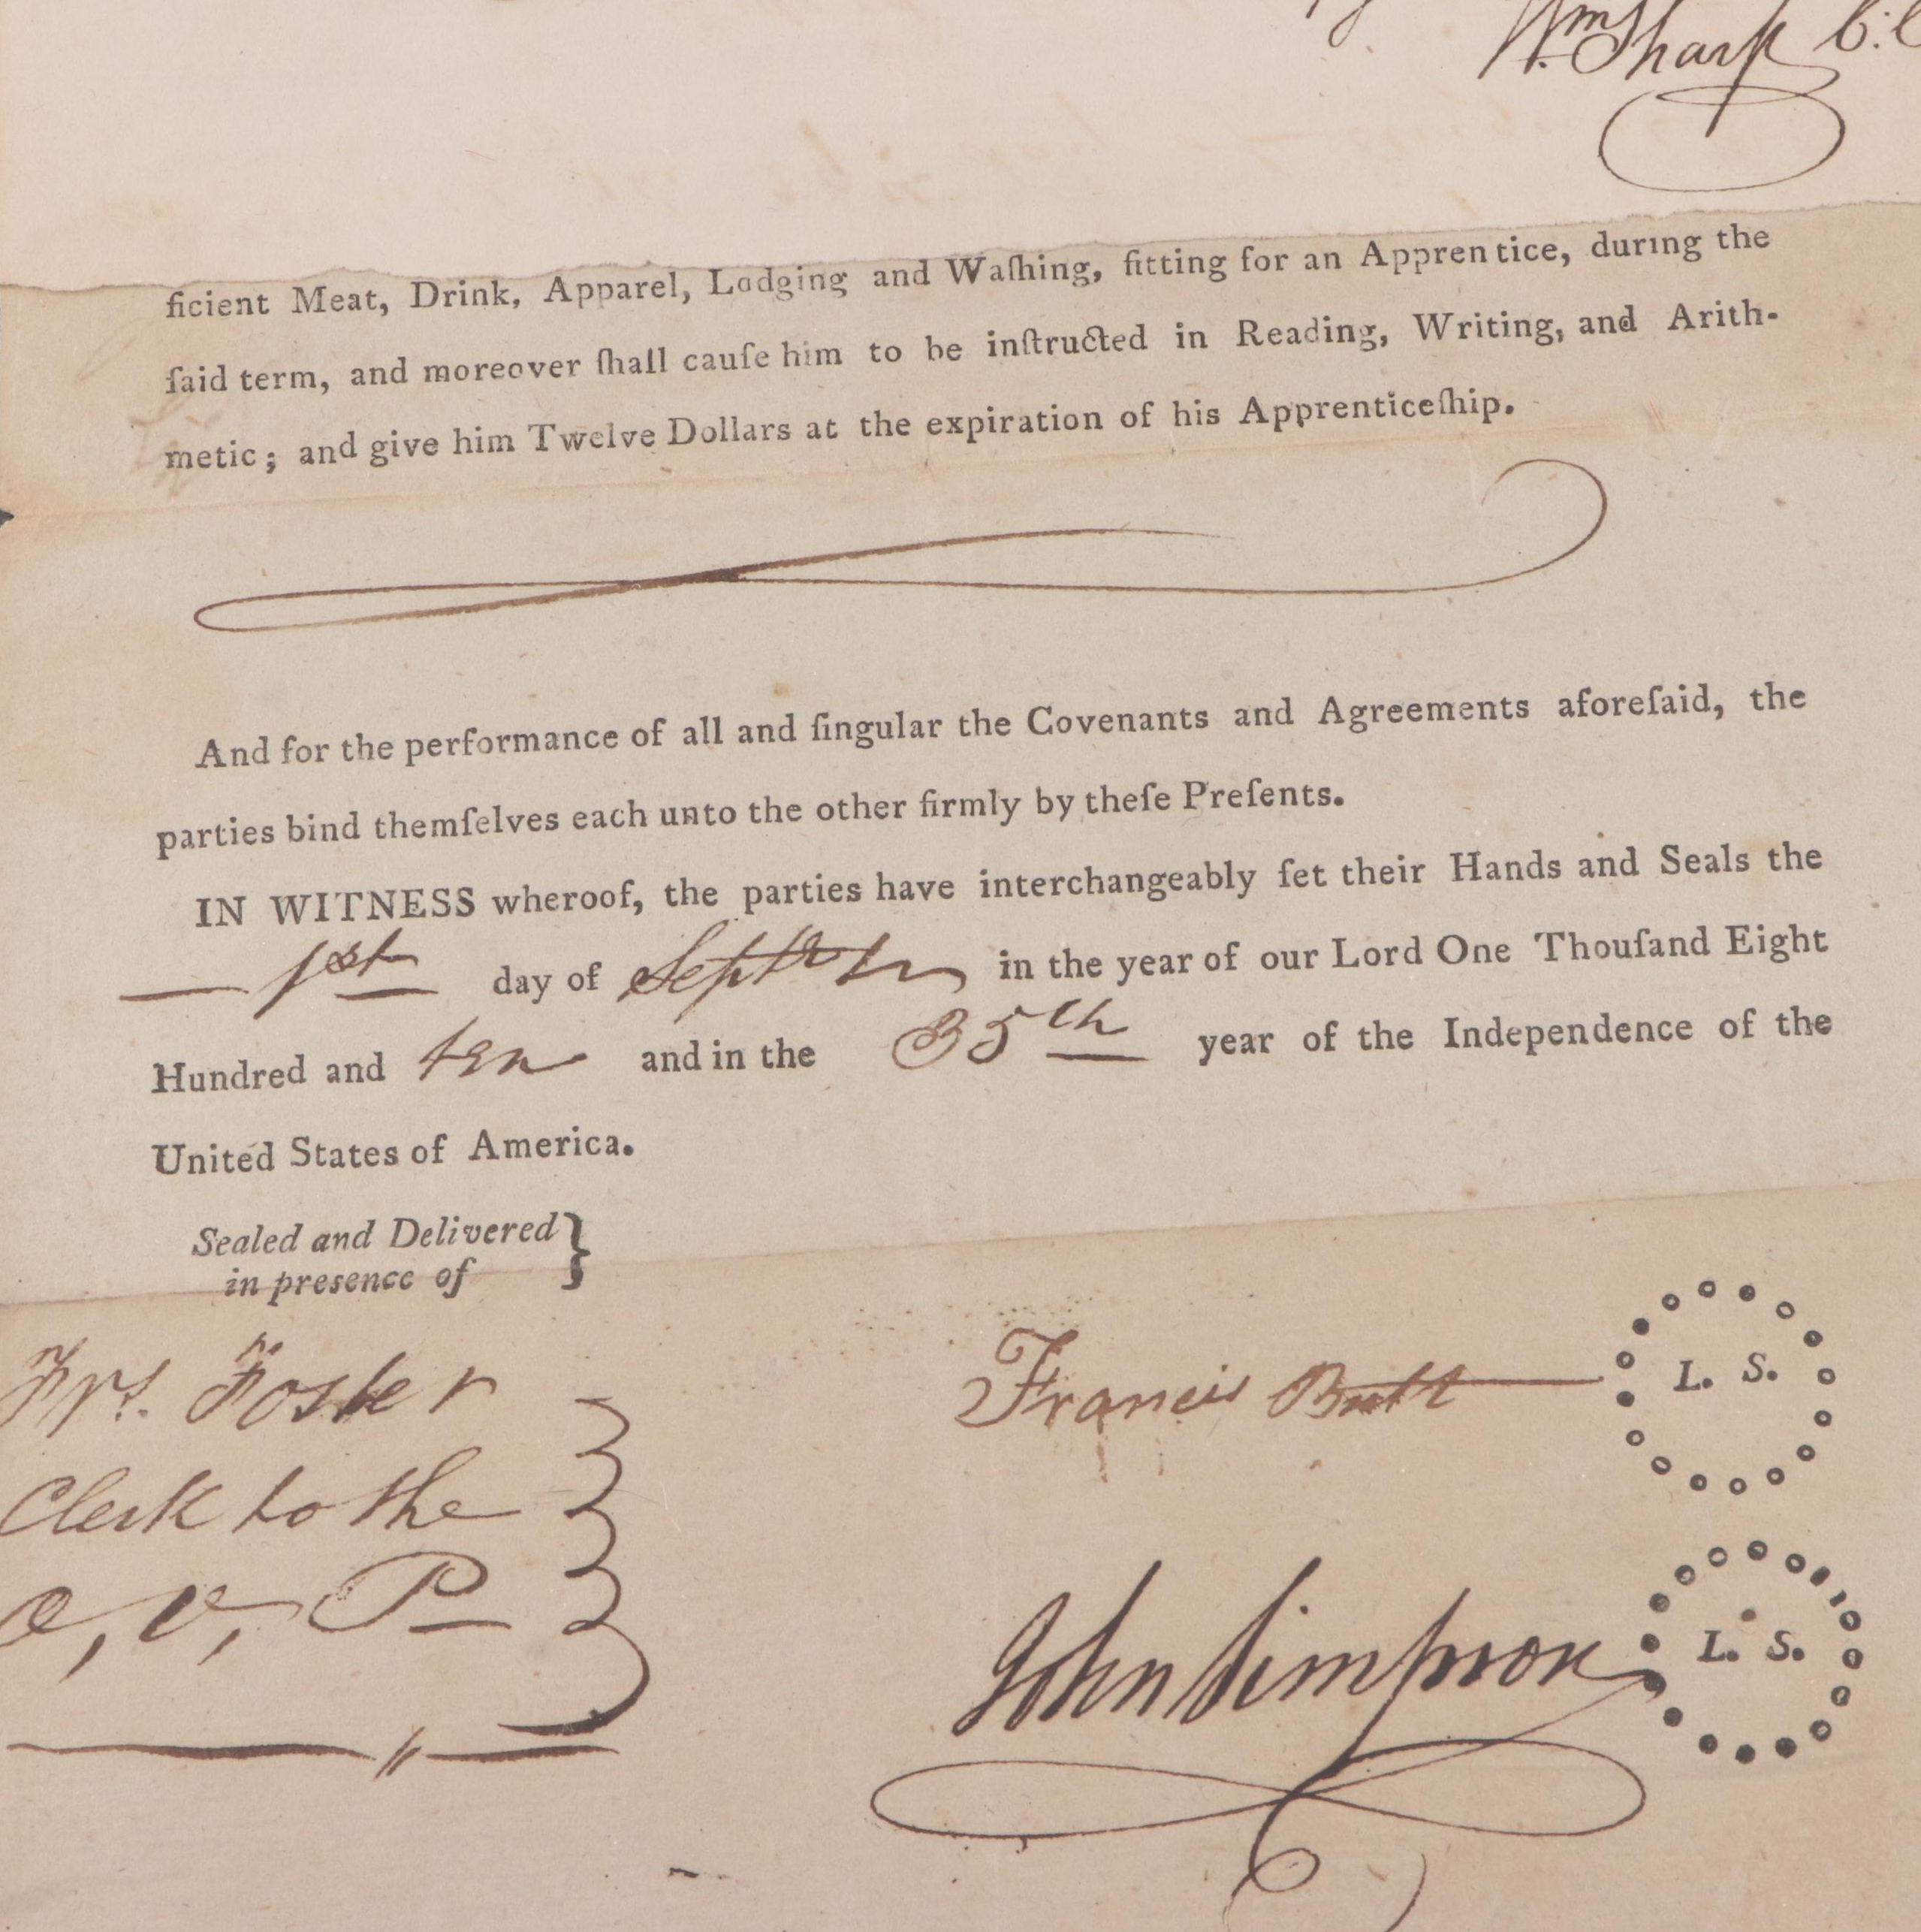 Wm. Sharp C:C
ficient Meat, Drink, Apparel, Lodging and Waſhing, fitting for an Apprentice, during the
ſaid term, and moreover ſhall cauſe him to be inſtructed in Reading, Writing, and Arith-
metic; and give him Twelve Dollars at the expiration of his Apprenticeſhip.
And for the performance of all and ſingular the Covenants and Agreements aforeſaid, the
parties bind themſelves each unto the other firmly by theſe Preſents.
IN WITNESS wheroof, the parties have interchangeably ſet their Hands and Seals the
1st day of September in the year of our Lord One Thouſand Eight
Hundred and ten and in the 35th year of the Independence of the
United States of America.
Sealed and Delivered
in presence of
Frs. Foster
Clerk to the
O, V, P
Francis Butt L. S.
John Simpson L. S.